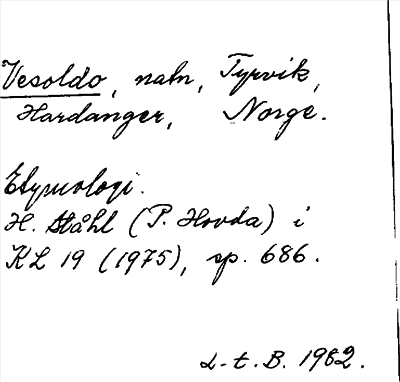 Vesoldo, natn, Tyrvik,
Hardanger, Norge.
Etymologi.
H. Ståhl (P. Hovda) i
KL 19 (1975), sp. 686.
L-t. B. 1982.